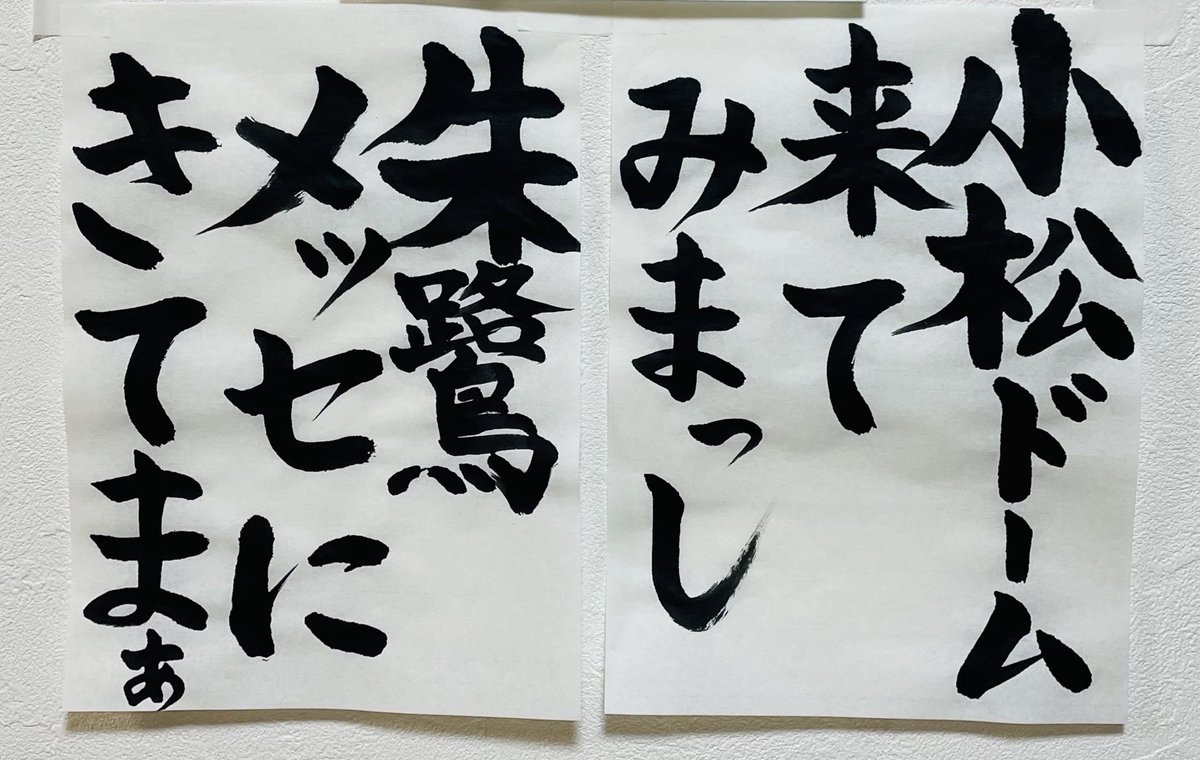 小松ドーム
来て
みまっし
朱鷺
メッセに
きてまぁ